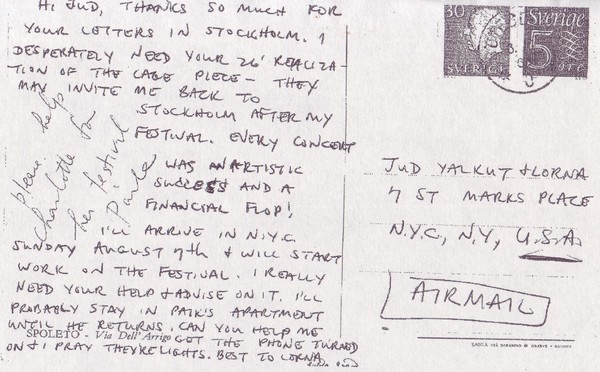 HI JUD, THANKS SO MUCH FOR
YOUR LETTERS IN STOCKHOLM. I
DESPERATELY NEED YOUR 26' REALIZA-
TION OF THE CAGE PIECE - THEY
MAY INVITE ME BACK TO
STOCKHOLM AFTER MY
FESTIVAL. EVERY CONCERT
WAS AN ARTISTIC
SUCCESS AND A
FINANCIAL FLOP!
I'LL ARRIVE IN N.Y.C.
SUNDAY AUGUST 7TH & WILL START
WORK ON THE FESTIVAL. I REALLY
NEED YOUR HELP & ADVISE ON IT. I'LL
PROBABLY STAY IN PAIK'S APARTMENT
UNTIL HE RETURNS. CAN YOU HELP ME
GET THE PHONE TURNED
ON & I PRAY THEYRE LIGHTS. BEST TO LORNA
please help
Charlotte for
her festival
Paik
SPOLETO - Via Dell' Arrigo
30
SVERIGE
Sverige
5
ÖRE
JUD YALKUT & LORNA
7 ST MARKS PLACE
N.Y.C, N.Y, U.S.A
AIRMAIL